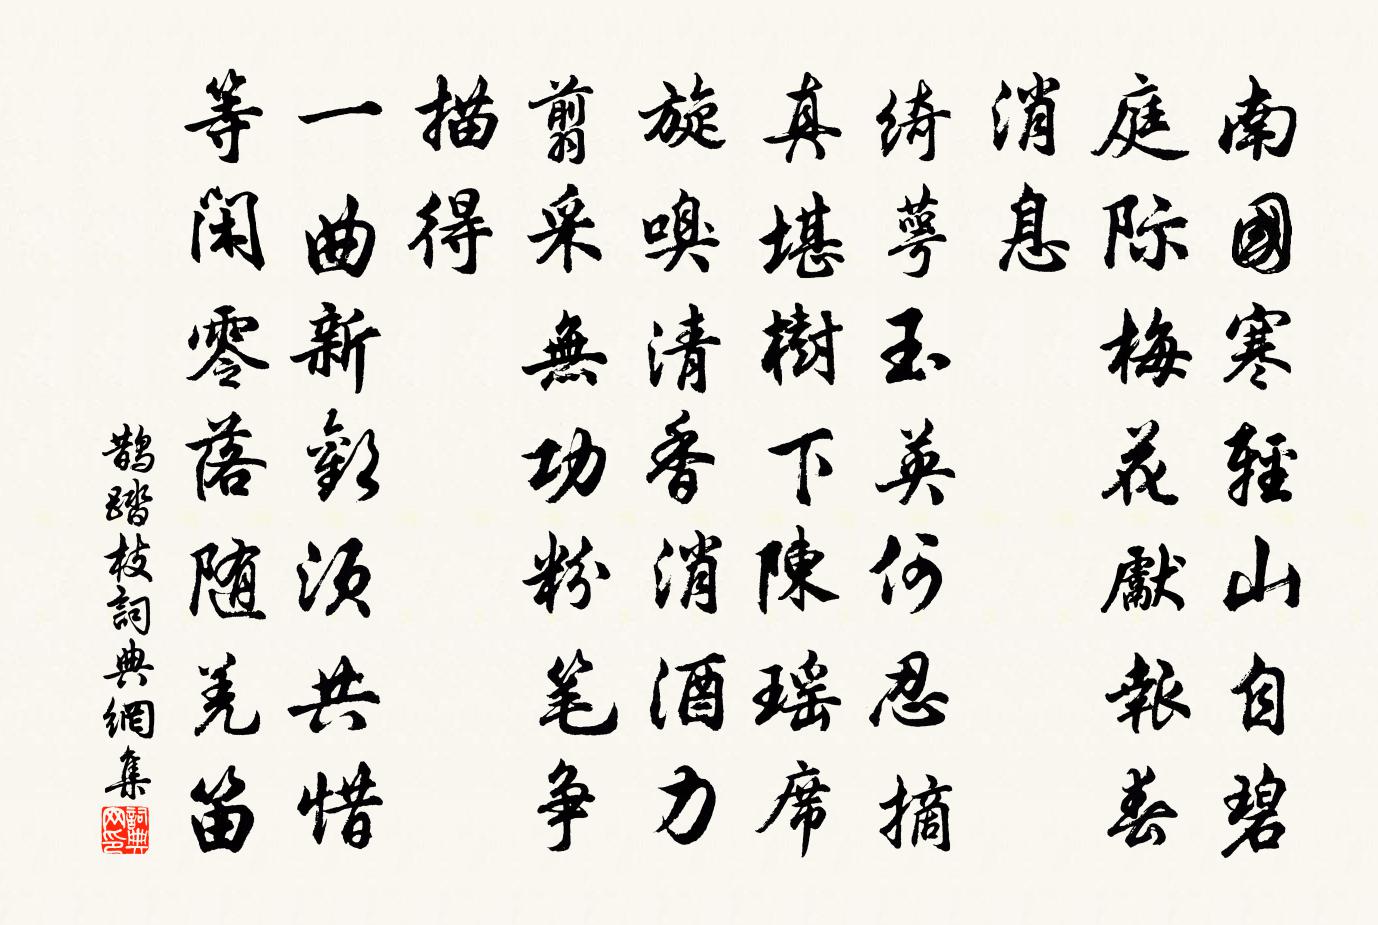 南國寒輕山自碧
庭际梅花獻報春
消息
綺萼玉英何忍摘
真堪樹下陳瑶席
旋嗅清香消酒力
翦采無功粉笔争
描得
一曲新歡须共惜
等閑零落随羌笛
鵲踏枝詞典網集
詞典网印